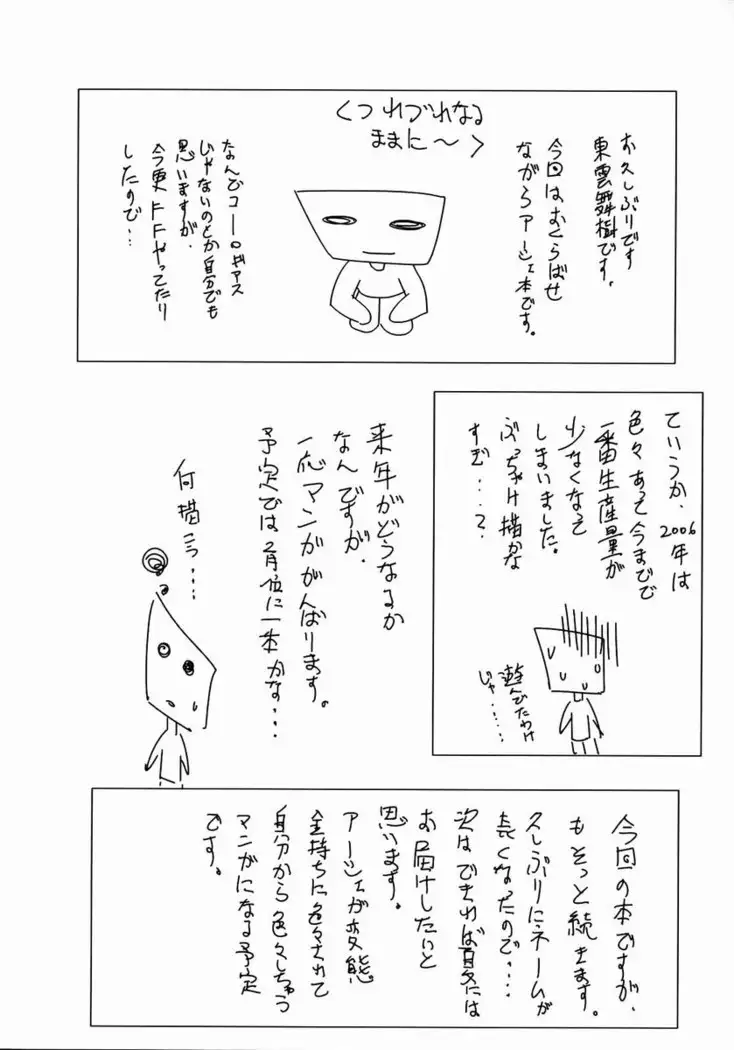 お久しぶりです
東雲舞樹です。
今回はおくらばせ
ながらアーシェ本です。
くつれづれなる
ままに～>
なんでコードギアス
じゃないのとか自分でも
思いますが、
今更FFやってたり
したので…
ていうか、2006年は
色々あって今までで
一番生産量が
少なくなって
しまいました。
ぶっちゃけ描かな
すぎ…?
遊んでたわけ
じゃ……
来年がどうなるか
なんですが、
一応マンガがんばります。
予定では2月位に一本かな…
何描こう…
今回の本ですが、
もそっと続きます。
久しぶりにネームが
長くなったので…
次はできれば夏には
お届けしたいと
思います。
アーシェが変態
金持ちに色々されて
自分から色々しちゃう
マンガになる予定
です。